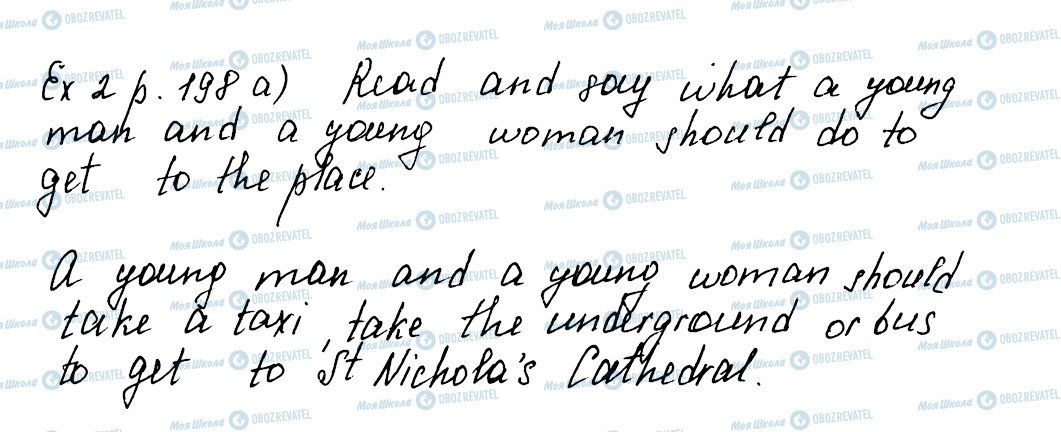 Ex 2 p. 198 a) Read and say what a young
man and a young woman should do to
get to the place.
A young man and a young woman should
take a taxi, take the underground or bus
to get to St Nichola's Cathedral.